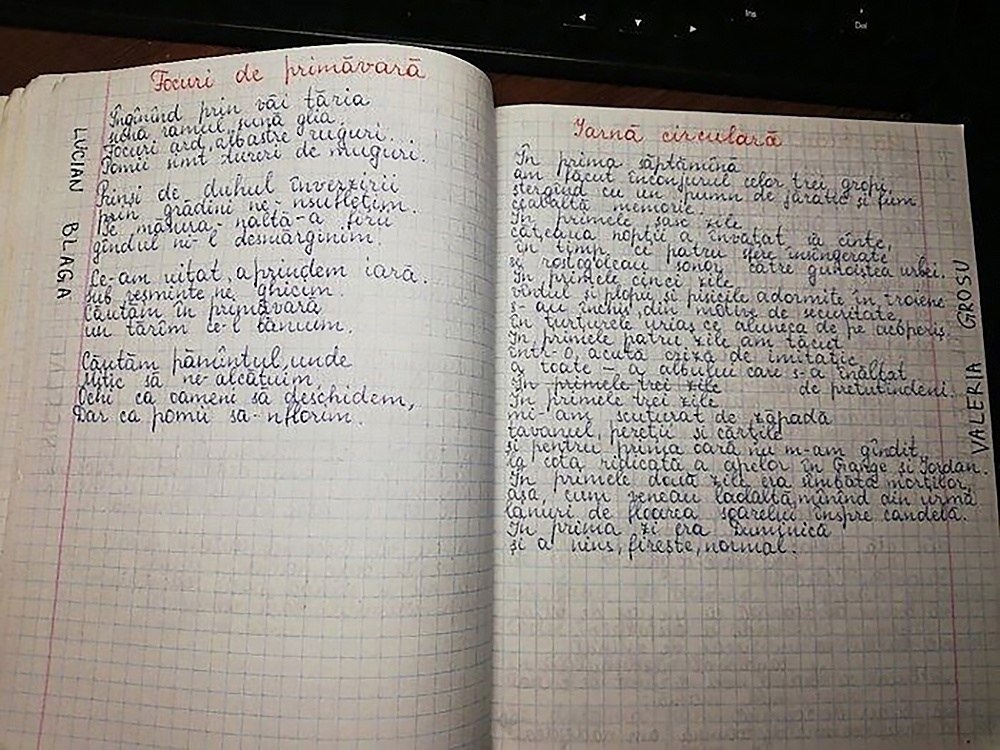 Focuri de primăvară
LUCIAN BLAGA
Îngînînd prin văi tăria
sună ramul, sună glia.
Focuri ard, albastre ruguri.
Pomii simt dureri de muguri.
Prinși de duhul înverzirii
prin grădini ne-nsuflețim.
Pe măsura-naltă-a firii
gîndul ni-l desmărginim.
Ce-am uitat, aprindem iară.
Sub vesminte ne ghicim.
Căutăm în primăvară
un tărîm ce-l bănuim.
Căutăm pămîntul, unde
Mitic să ne-alcătuim,
Ochi ca oameni să deschidem,
Dar ca pomii să-nflorim.
Iarnă circulară
VALERIA GROSU
În prima săptămînă
am făcut înconjurul celor trei gropi,
ștergînd cu un pumn de jăratic și fum
cealaltă memorie.
În primele șase zile
cățeaua nopții a învățat să cînte,
în timp ce patru sfere însîngerate
se rostogoleau sonor către gunoiștea urbei.
În primele cinci zile
vîntul și plopii și pisicile adormite în troiene
s-au închis, din motive de securitate,
în țurțurele uriaș ce aluneca de pe acoperiș.
În primele patru zile am tăcut
într-o acută criză de imitație
a toate – a albului care s-a înălțat
de pretutindeni.
În primele trei zile
În primele trei zile
mi-am scuturat de zăpadă
tavanul, pereții și cărțile
și pentru prima oară nu m-am gîndit
la cota ridicată a apelor în Gange și Iordan.
În primele două zile era îmbată morților,
așa, cum veneau laolaltă, mînînd din urmă
lanuri de floarea soarelui înspre candelă.
În prima zi era Duminică
și a nins, firește, normal.
Ins
Del